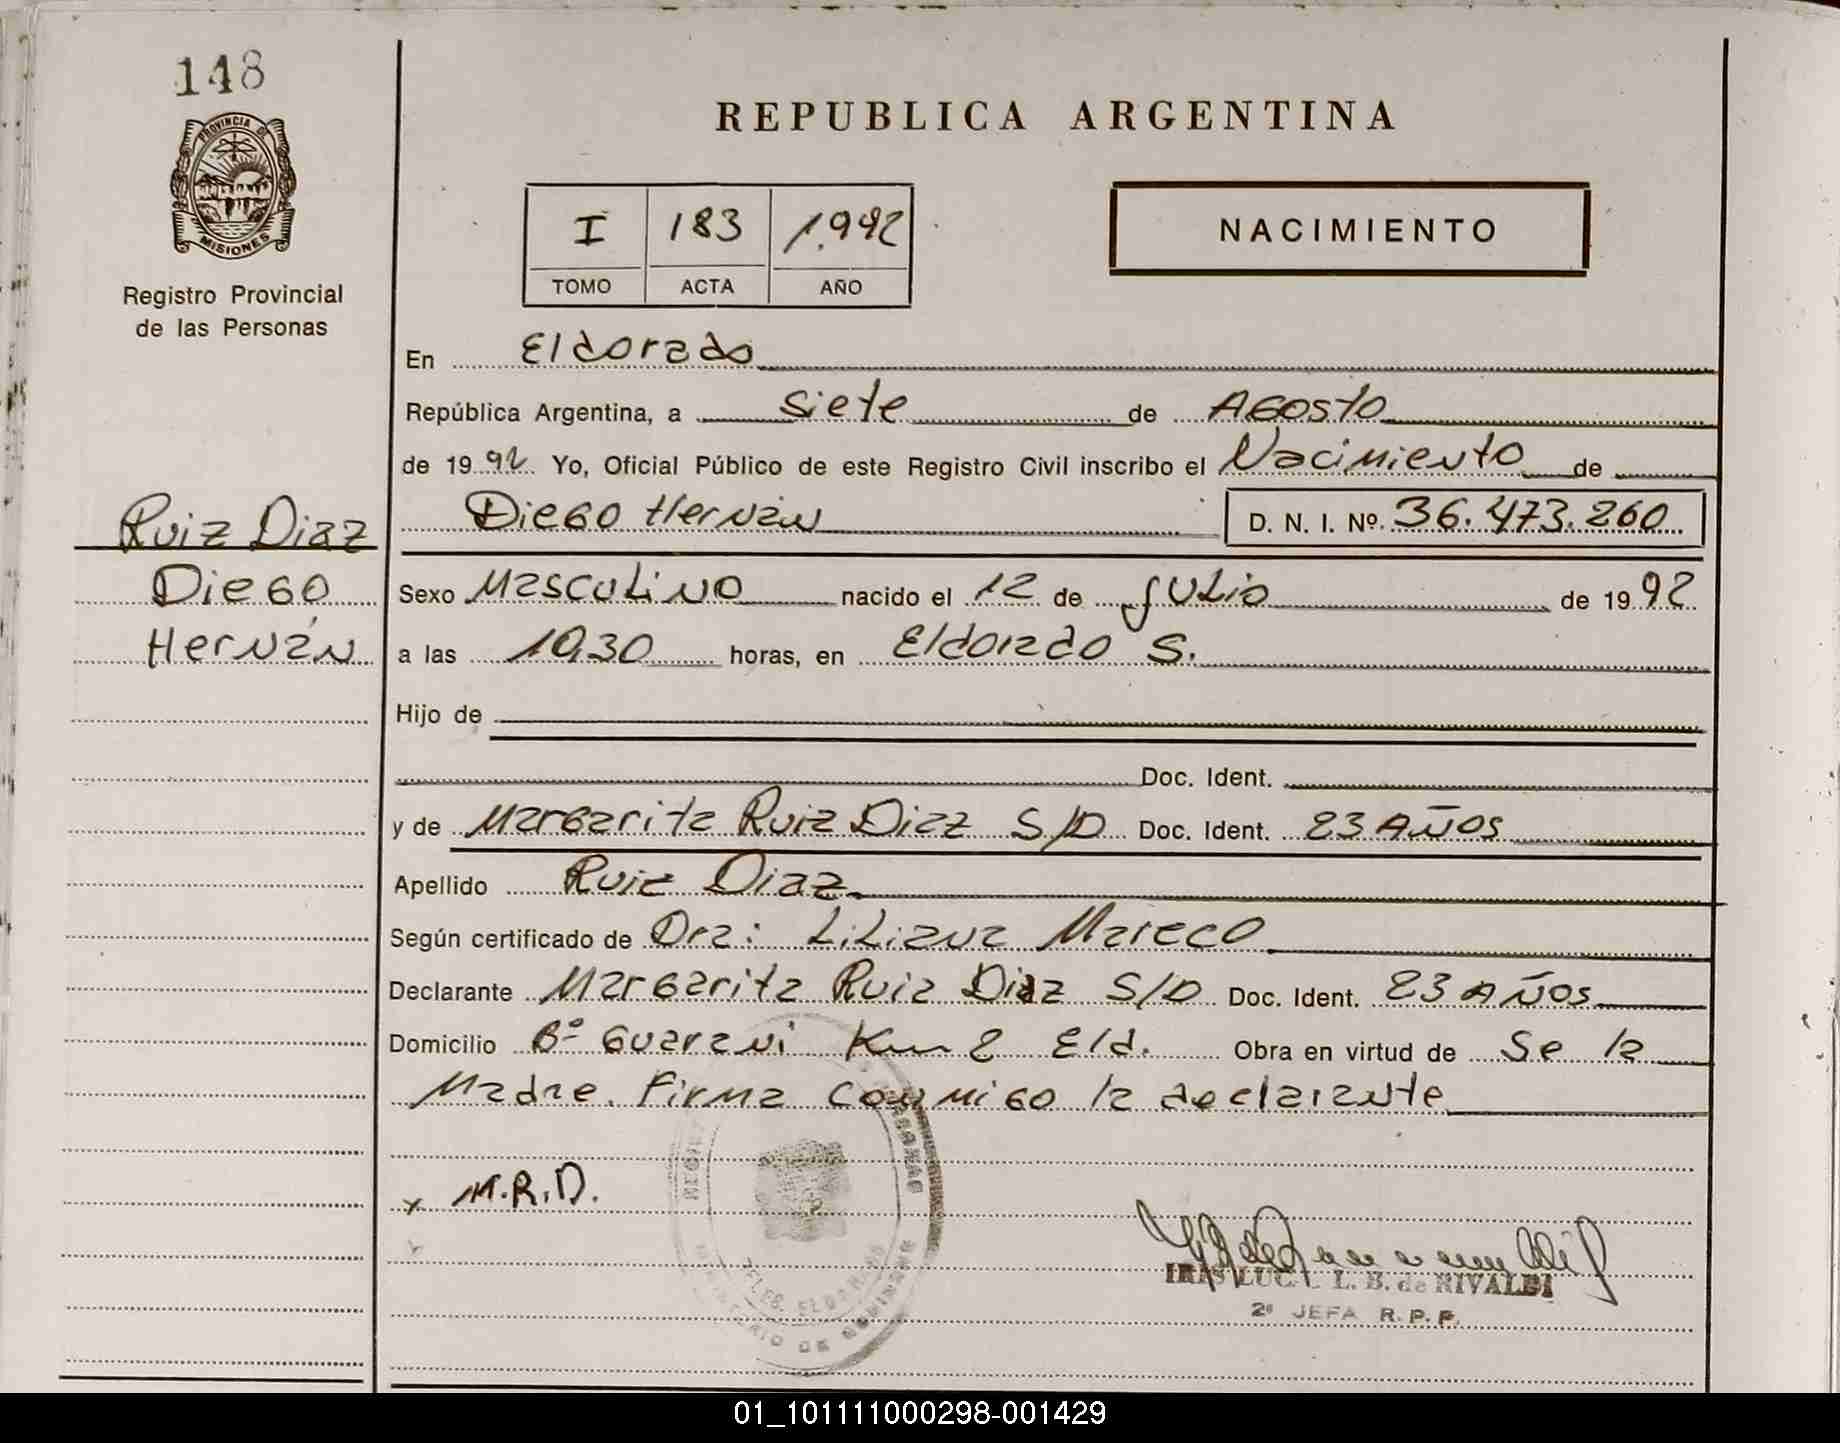 148
PROVINCIA DE
MISIONES
Registro Provincial
de las Personas
REPUBLICA ARGENTINA
I 183 1.992
TOMO ACTA AÑO
NACIMIENTO
En Eldorado
República Argentina, a Siete de Agosto
de 19 92 Yo, Oficial Público de este Registro Civil inscribo el Nacimiento de
Diego Hernán D. N. I. Nº. 36.473.260
Ruiz Diaz
Diego
Hernán
Sexo Masculino nacido el 12 de Julio de 19 92
a las 10,30 horas, en Eldorado S.
Hijo de
Doc. Ident.
y de Margarita Ruiz Diaz S/D Doc. Ident. 23 AÑOS
Apellido Ruiz Diaz
Según certificado de Dra: Liliana Mareco
Declarante Margarita Ruiz Diaz S/D Doc. Ident. 23 AÑOS
Domicilio Bº Guarani Km 2 Eld. Obra en virtud de Se la
Madre. Firma conmigo la declarante
x M.R.D.
L. B. de RIVALDI
2ª JEFA R.P.P.
01_101111000298-001429